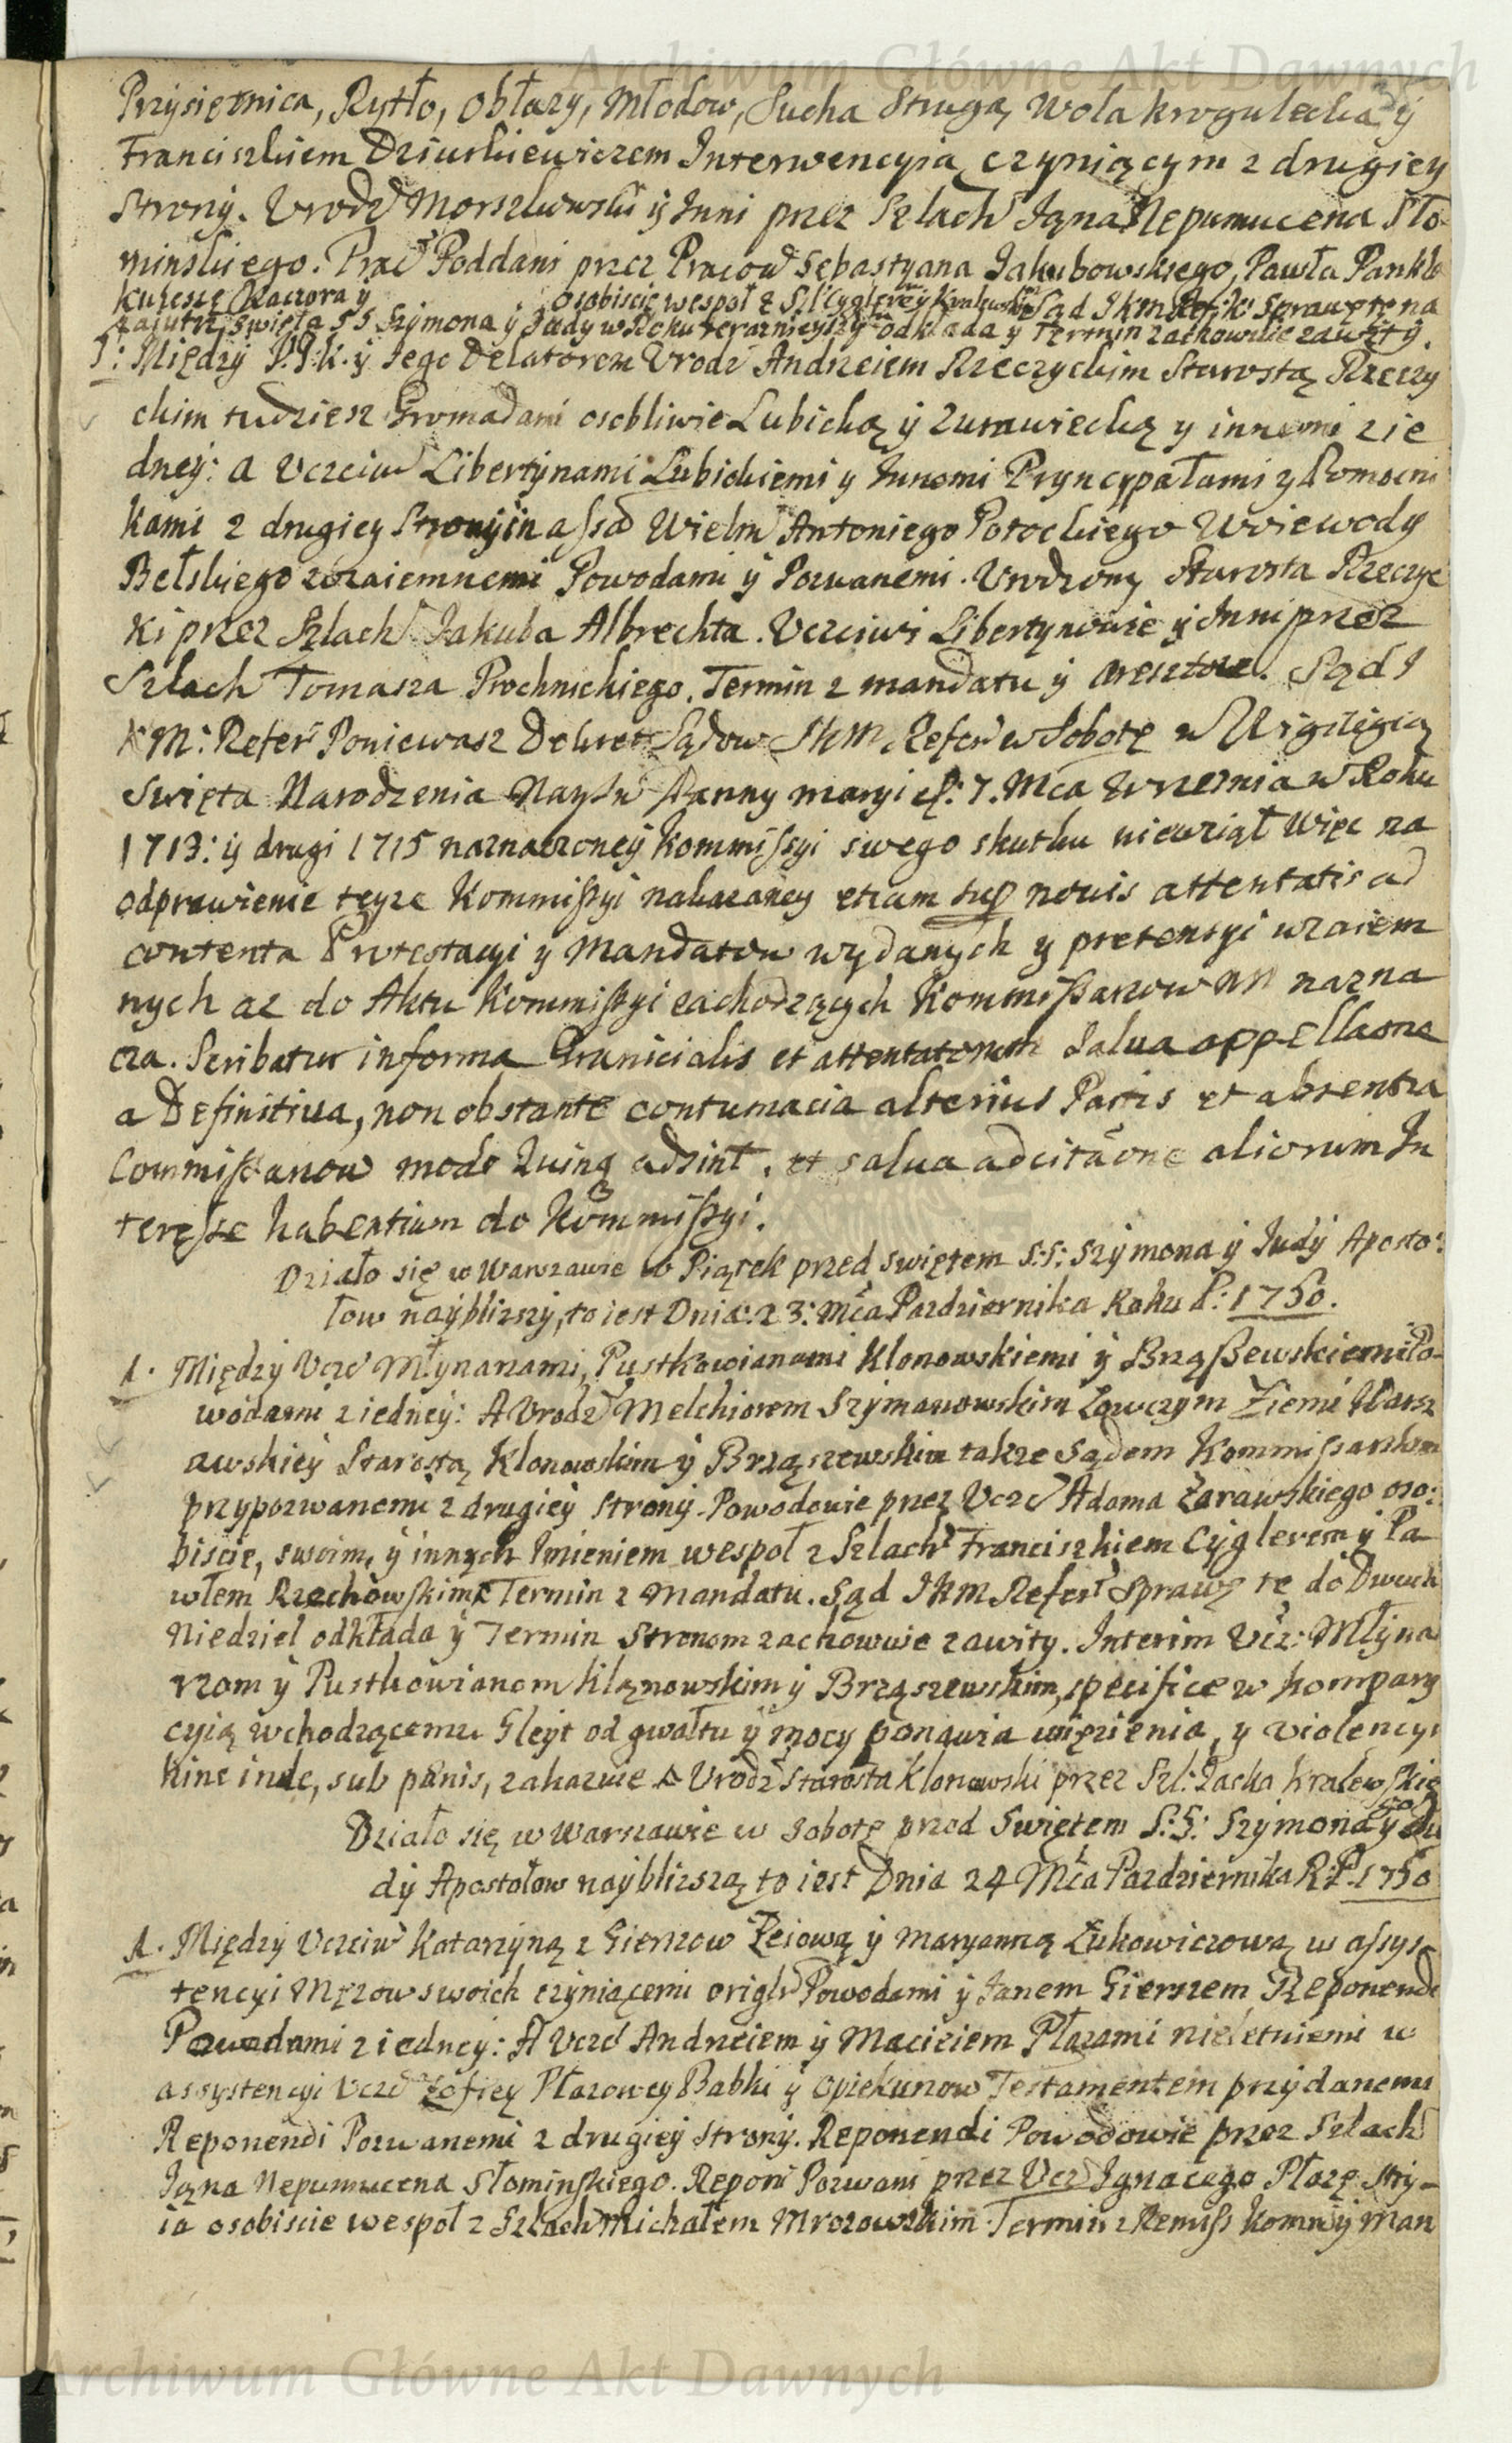 Archiwum Główne Akt Dawnych
Przysiętnica, Rytło, Obłazy, Młodow, Sucha Struga, Wola krogulecka y
Franciszkiem Dziurkiewiczem Interwencyią czyniącym z drugiey
Strony. Urodz Morszkowski y Inni przez Szlach Jana Nepumucena Sło-
minskiego. Prac Poddani przez Pracow Sebastyana Jakubowskiego, Pawła
Kuleszę Kaczora y osobiscie wespoł z Szl Cyglerem y Sąd JKM Refer: k: Sprawę tę na
zaiutrz Swięta SS Szymona y Judy w Roku teraznieyszym odkłada y Termin zachowuie zawity.
Między J.J:K. y Jego Delatorem Urodz Andrzeiem Rzeczyckim Starostą Rzeczy
ckim tudziesz Gromadami osobliwie Lubicką y Zurawiecką y innemi z ie
dney: a Uczciw Libertynami Lubickiemi y Innemi Pryncypałami y Pomocni
kami z drugiey Strony in assa Wielm Antoniego Potockiego Woiewody
Bełskiego wzaiemnemi Powodami y Pozwanemi. Urodzony Starosta Rzeczyc
ki przez Szlach Jakuba Albrechta. Uczciwi Libertynowie y Inni przez
Szlach Tomasza Prochnickiego. Termin z mandatu y aresztow. Sąd J
K M: Refer Poniewasz Dekret Sądow JKM Refer w Sobotę w Wigiligią
Swięta Narodzenia Nays Panny maryi d: 7. Mca Wrzesnia w Roku
1713: y drugi 1715 naznaczoney Kommissyi swego skutku niewziął Więc na
odprawienie teyze Kommissyi nakazaney etiam sup novis attentatis ad
contenta Protestacyi y Mandatow wydanych y pretensyi wzaiem
nych az do Aktu Kommissyi zachodzących Kommissarzow NN nazna
cza. Scribatur in forma Granicialis et attentatorum Salua appellaone
a Definitiua, non obstante contumacia alterius Partis et absentia
Commissarzow modo Quinq adsint. et salua adcitaone aliorum In
teresse habentium do Kommissyi.
Działo się w Warszawie w Piątek przed swiętem S:S: Szymona y Judy Aposto:
łow naybliszy, to iest Dnia: 23: Mca Pazdziernika Roku P: 1750.
1. Między Ucz Młynarzami, Pustkowianami Klonowskiemi y Brząszewskiemi Po-
wodami z iedney: A Urodz Melchiorem Szymanowskim Łowczym Ziemi Warsz
awskiey Starostą Klonowskim y Brząszewskim takze Sądem Kommissarskim
przypozwanemi z drugiey Strony. Powodowie przez Ucz Adama Zarawskiego oso:
biscie, swoim, y innych Imieniem wespoł z Szlach Franciszkiem Cyglerem y Pa
włem Rzechowskim Termin z Mandatu. Sąd JKM Refer Sprawę tę do Dwuch
Niedziel odkłada y Termin Stronom zachowuie zawity. Interim Ucz: Młyna
rzom y Pustkowianom Klonowskim y Brząszewskim, specifice w kompary
cyią wchodzącemu Gleyt od gwałtu y mocy ponawia więzienia, y violencyi
hinc inde, sub pænis, zakazuie Urodz Starosta Klonowski przez Szl: Jacka Kralewskie
go
Działo się w Warszawie w Sobotę przed Swiętem S:S: Szymona y Ju
dy Apostołow naybliszą, to iest Dnia 24 Mca Pazdziernika R:P: 1750
1. Między Uczciw Katarzyną z Gierszow Zeiową y Maryanną Łukowiczową w assys
tencyi Męzow swoich czyniącemi origl Powodami y Janem Gierszem Reponendi
Powodami z iedney: A Ucz Andrzeiem y Macieiem Płazami nieletniemi w
assystencyi Ucz Zofiey Płazowey Babki y Opiekunow Testamentem przydanemi
Reponendi Pozwanemi z drugiey Strony. Reponendi Powodowie przez Szlach
Jana Nepumucena Słominskiego. Repon Pozwani przez Ucz Ignacego Płazę Stry-
ia osobiscie wespoł z Szlach Michałem Mrozowskim Termin z Remiss Komm y Man
Archiwum Główne Akt Dawnych